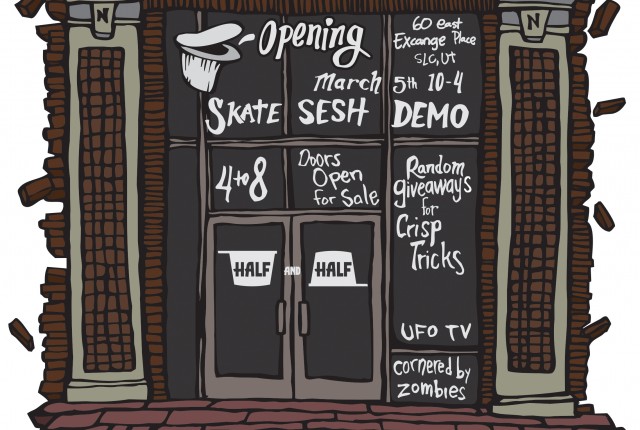 N
N
Opening
60 east
Excange Place
SLC, UT
March
5th 10-4
SKATE SESH DEMO
4to8
Doors
Open
for Sale
Random
giveaway's
for
Crisp
Tricks
HALF AND HALF
UFO TV
cornered by
zombies